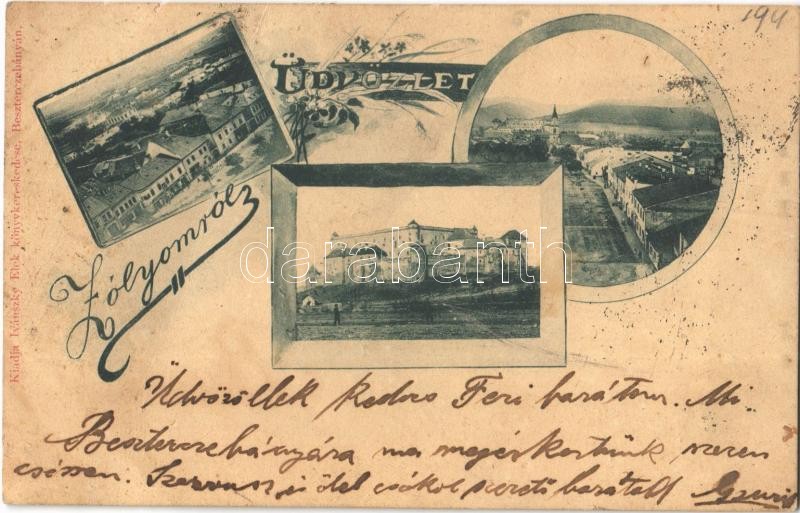 194
ÜDVÖZLET
Zólyomról
darabanth
Kiadja Ivánszky Elek könyvkereskedése, Beszterczebányán.
Üdvözöllek kedves Feri barátom. Mi
Beszterczebányára ma megérkeztünk szeren
csésen. Szervusz, ölel csókol szerető barátod